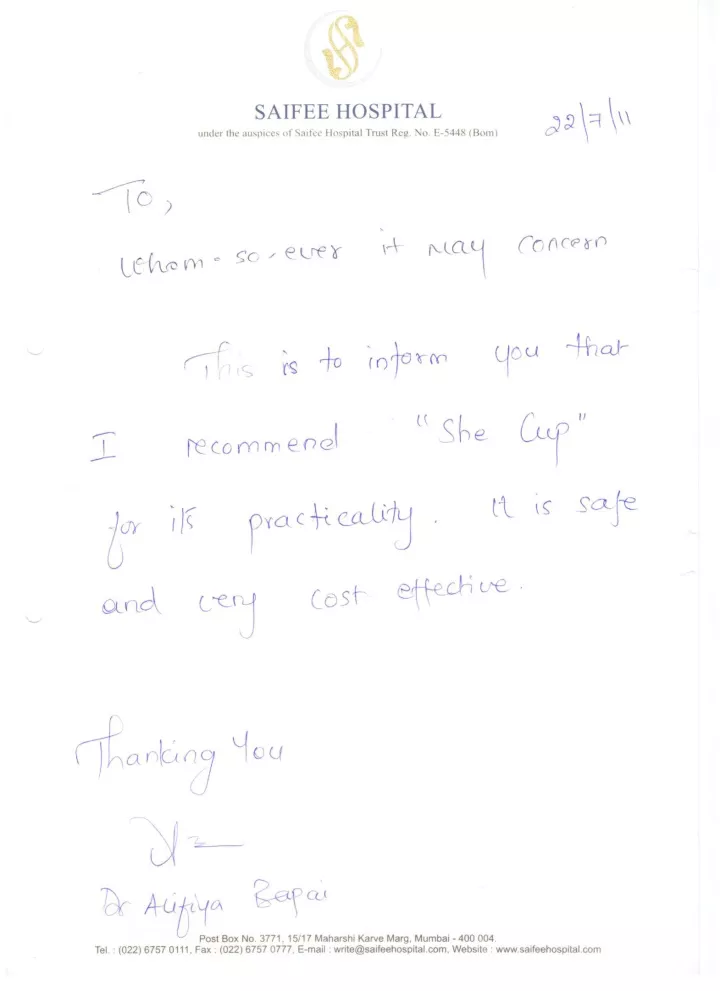 SAIFEE HOSPITAL
under the auspices of Saifee Hospital Trust Reg. No. E-5448 (Bom)
22/7/11
To,
Whom-so-ever it may concern
This is to inform you that
I recommend "She Cup"
for its practicality. It is safe
and very cost effective.
Thanking You
Dr Alifiya Bapai
Post Box No. 3771, 15/17 Maharshi Karve Marg, Mumbai - 400 004.
Tel. : (022) 6757 0111, Fax : (022) 6757 0777, E-mail : write@saifeehospital.com, Website : www.saifeehospital.com